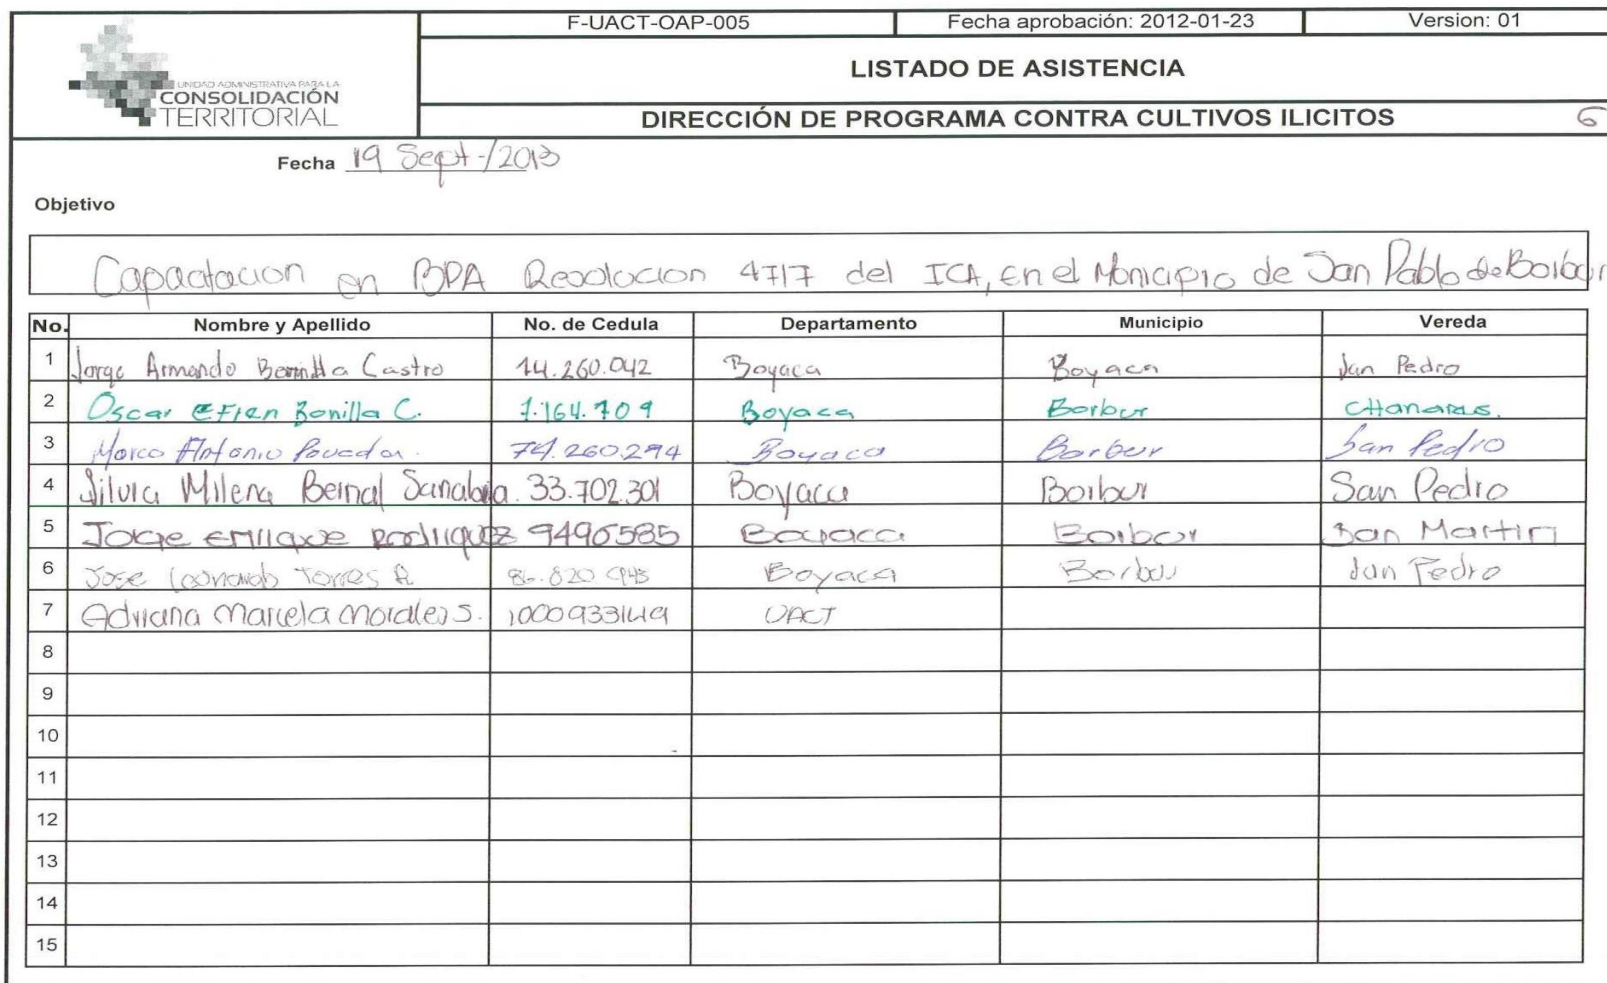 F-UACT-OAP-005 Fecha aprobación: 2012-01-23 Version: 01
UNIDAD ADMINISTRATIVA PARA LA
CONSOLIDACIÓN
TERRITORIAL
LISTADO DE ASISTENCIA
DIRECCIÓN DE PROGRAMA CONTRA CULTIVOS ILICITOS 6
Fecha 19 Sept-/2013
Objetivo
Capacitacion en BPA Resolucion 4717 del ICA, en el Municipio de San Pablo de Borbur
No. Nombre y Apellido No. de Cedula Departamento Municipio Vereda
1 Jorge Armando Castro 14.260.042 Boyaca Boyaca San Pedro
2 Oscar EFren Bonilla C. 7.164.709 Boyaca Borbur
3 Marco Antonio 74.260.294 Boyaca Borbur San Pedro
4 Silvia Milena Bernal Sanabria 33.702.301 Boyaca Borbur San Pedro
5 Jorge Enrique Rodriguez 9496585 Boyaca Borbur San Martin
6 Jose Leonardo Torres R. Boyaca Borbur San Pedro
7 Adriana Marcela Morales S. UACT
8
9
10
11
12
13
14
15